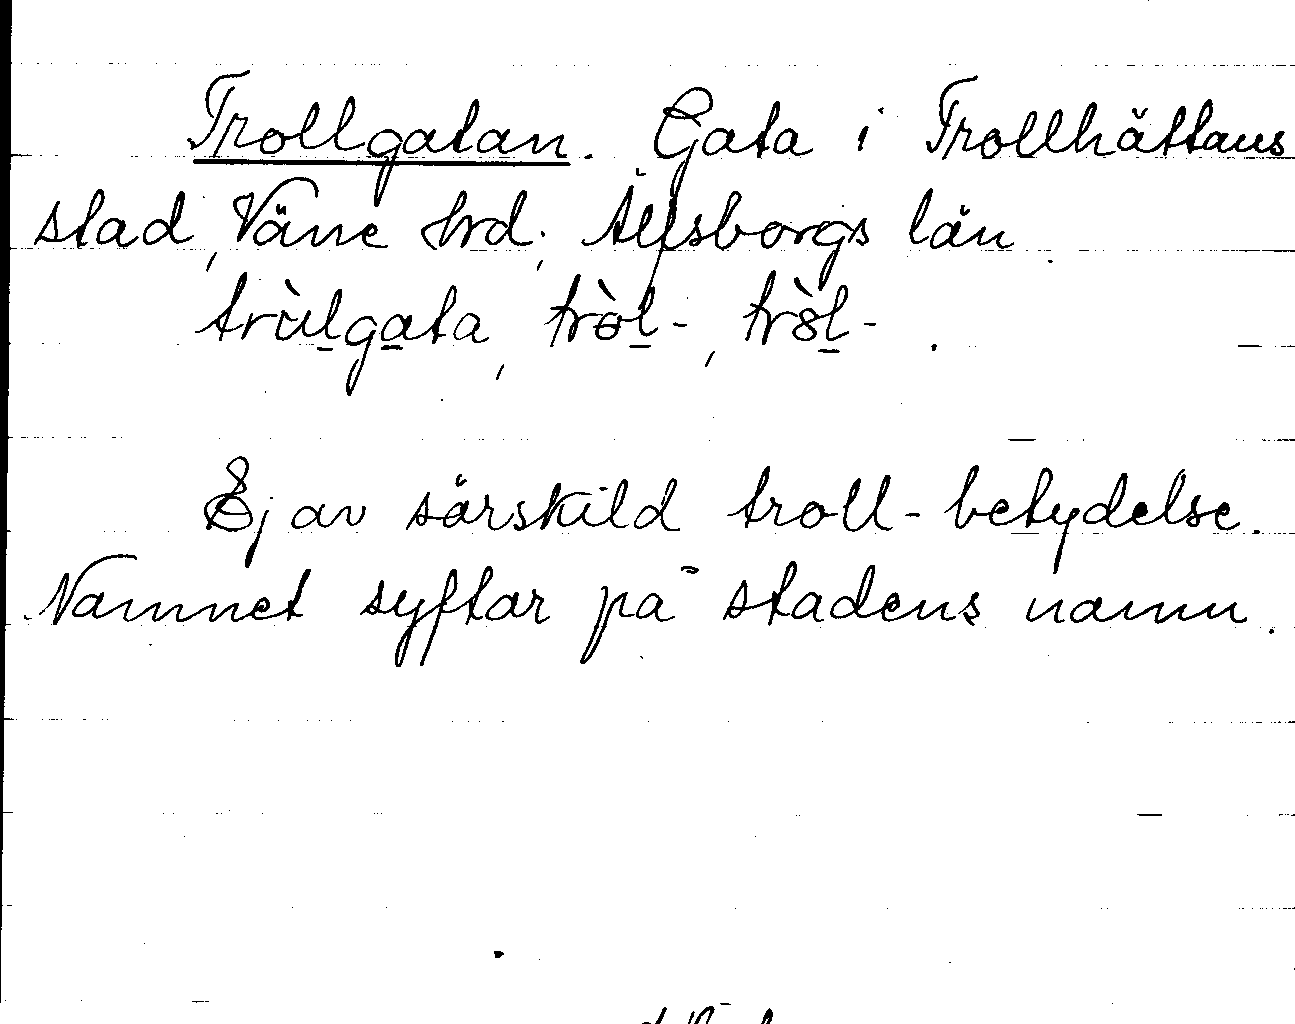 Trollgatan. Gata i Trollhättans
stad, Väne hrd, Älfsborgs län.
trùlgata, tròl-, trò̈l-.
Ej av särskild troll-betydelse.
Namnet syftar på stadens namn.